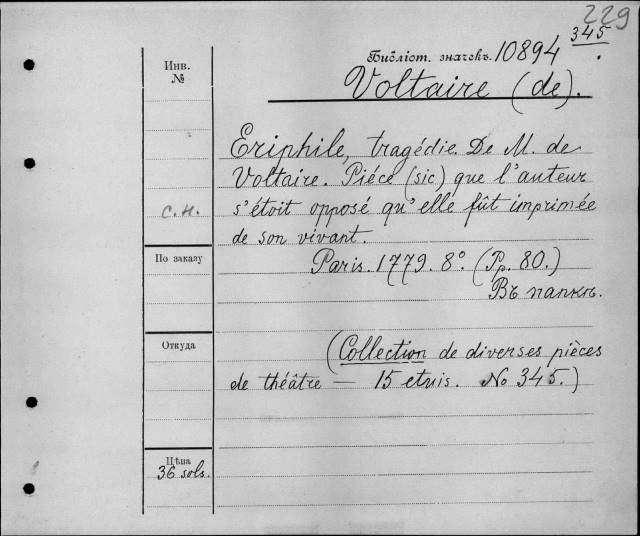 229
345
Инв.
№
Библіот. значекъ. 10894
Voltaire (de).
Eriphile, tragédie. De M. de
Voltaire. Piéce (sic) que l'auteur
с.н.
s'étoit opposé qu'elle fût imprimée
de son vivant.
По заказу
Paris. 1779. 8º. (Pp. 80.)
Въ папкѣ.
Откуда
(Collection de diverses pièces
de théâtre — 15 etuis. No 345.)
Цѣна
36 sols.